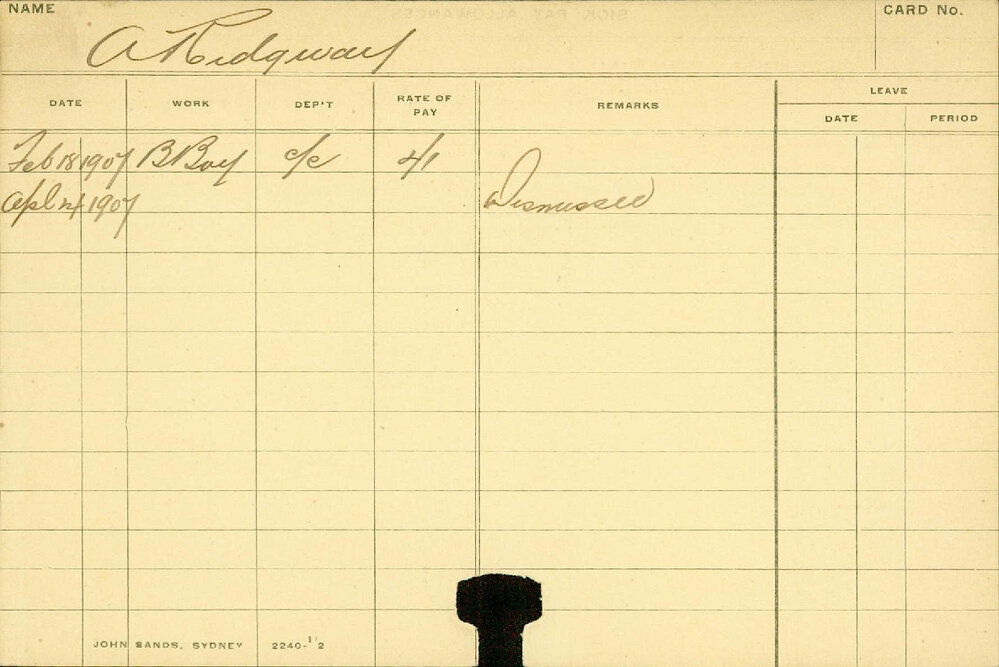 SICK PAY ALLOWANCES
NAME
CARD No.
A Ridgway
DATE WORK DEP'T RATE OF PAY REMARKS LEAVE
DATE PERIOD
Feb 18 1907 B Boy c/c 4/1
Apl 1907 Dismissed
JOHN SANDS, SYDNEY 2240-1'2